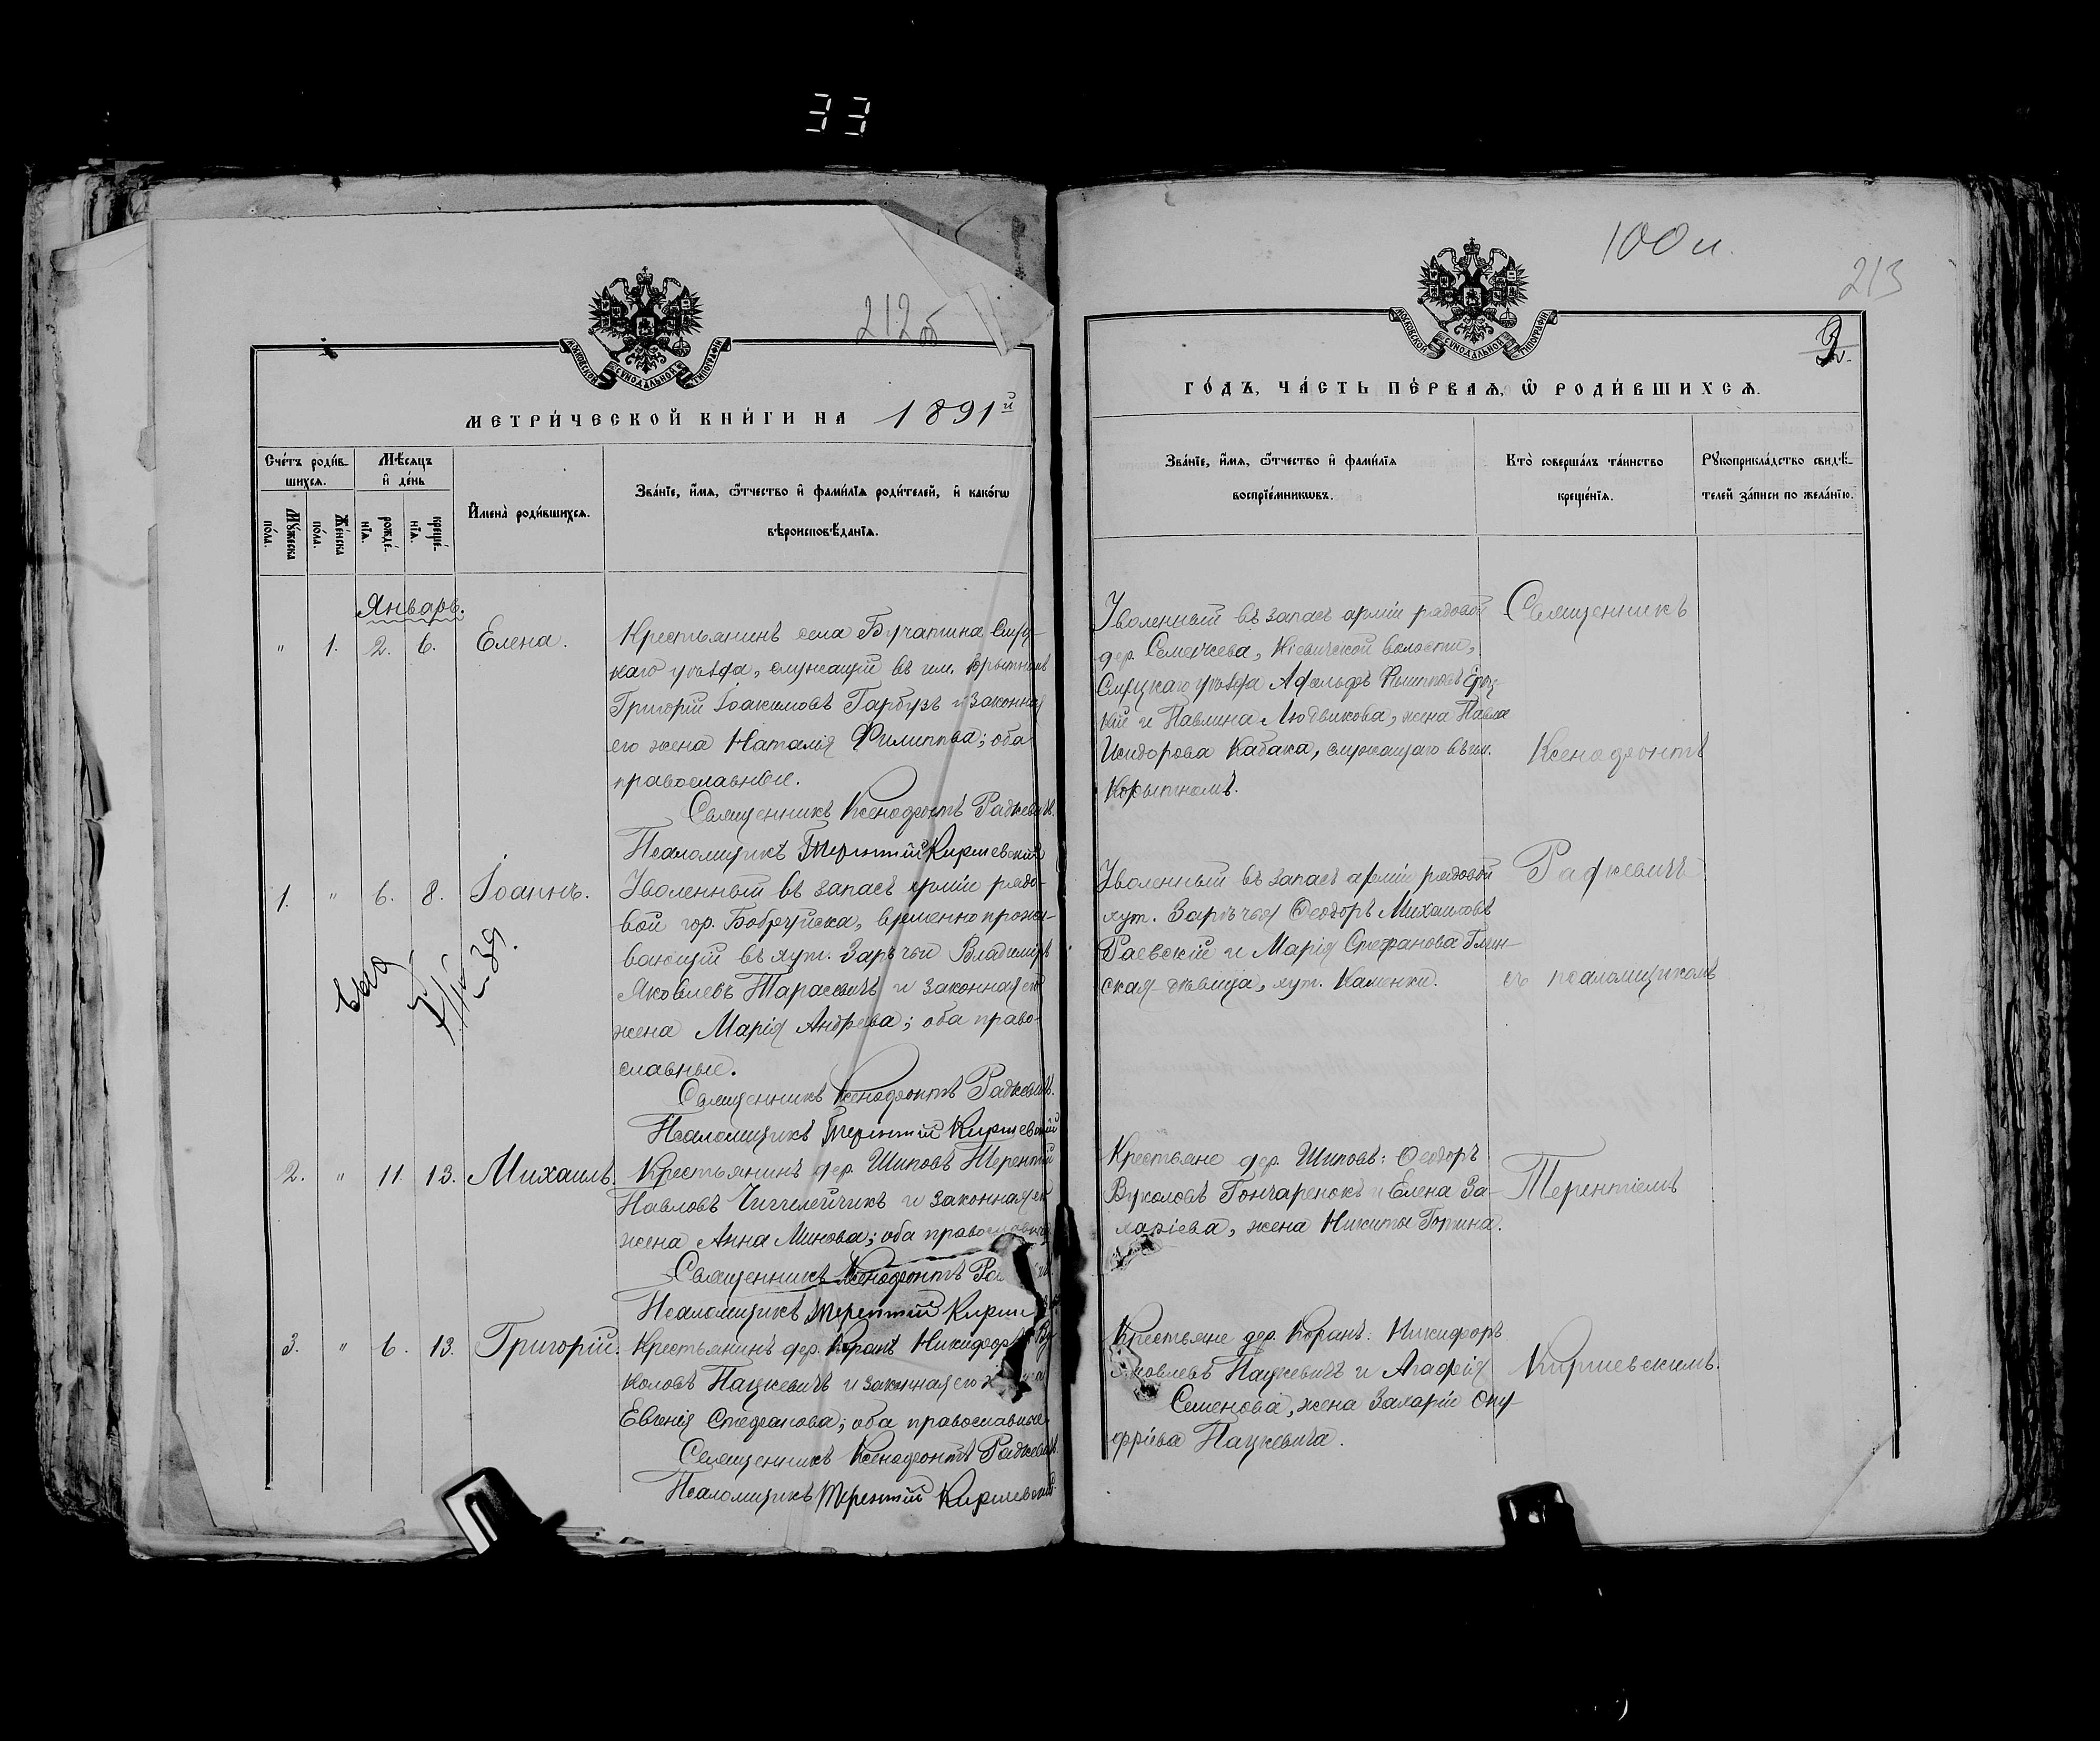 33
212 об
МОСКОВСКОЙ СѴНОДАЛЬНОЙ ТИПОГРАФІИ
МЕТРИ́ЧЕСКОЙ КНИ́ГИ НА 1891й
Сче́тъ роди́в-
шихсѧ.
Мѣ́сѧцъ
и҆ де́нь
Мꙋ́жеска
по́ла.
Же́нска
по́ла.
рожде́-
нїѧ.
креще́-
нїѧ.
И҆мена̀ роди́вшихсѧ.
Зва́нїе, и҆́мѧ, ѻ҆́тчество и҆ фами́лїѧ роди́телей, и҆ како́гѡ
вѣроисповѣ́данїѧ.
Январь.
" 1. 2. 6. Елена.
Крестьянинъ села Бучатина Слуц-
каго уѣзда, служащій въ им. Корытномъ
Григорій Іоакимовъ Гарбузъ и законная
его жена Наталія Филиппова; оба
православные.
Священникъ Ксенофонтъ Радкевичъ.
Псаломщикъ Терентій Киршевскій
1. " 6. 8. Іоаннъ.
Уволенный въ запасъ арміи рядо-
вой гор. Бобруйска, временно прожи-
вающій въ хут. Зарѣчьи Владимиръ
Яковлевъ Тарасевичъ и законная его
жена Марія Андреева; оба право-
славные.
Священникъ Ксенофонтъ Радкевичъ.
Псаломщикъ Терентій Киршевскій
2. " 11. 13. Михаилъ.
Крестьянинъ дер. Шиповъ Терентій
Павловъ Чигилейчикъ и законная его
жена Анна Минова; оба православные
Священникъ Ксенофонтъ
Псаломщикъ Терентій
3. " 6. 13. Григорій.
Крестьянинъ дер. Коранъ Никифоръ Ву-
коловъ Пацкевичъ и законная его
Евгенія Стефанова; оба православные.
Священникъ Ксенофонтъ Радкевичъ.
Псаломщикъ Терентій Киршевскій
100 и.
213
МОСКОВСКОЙ СѴНОДАЛЬНОЙ ТИПОГРАФІИ
ГО́ДЪ, ЧА́СТЬ ПЕ́РВАѦ, Ѡ҆ РОДИ́ВШИХСѦ.
Зва́нїе, и҆́мѧ, ѻ҆́тчество и҆ фами́лїѧ
воспрїе́мникѡвъ.
Кто̀ соверша́лъ та́инство
креще́нїѧ.
Рꙋкоприкла́дство свидѣ́-
телей за́писи по жела́нїю.
Уволенный въ запасъ арміи рядовой
дер. Семенчева, Кіевичской волости,
Слуцкаго уѣзда Адольфъ Филипповъ
и Павлина Людвикова, жена Павла
Исидорова Кабака, служащаго въ им.
Корытномъ.
Уволенный въ запасъ арміи рядовой
хут. Зарѣчья Ѳеодоръ Михаиловъ
Раевскій и Марія Стефанова Глин-
ская-дѣвица, хут. Каменки.
Крестьяне дер. Шиповъ: Ѳеодоръ
Вуколовъ Гончаренокъ и Елена За-
харіева, жена Никиты Гопина.
Крестьяне дер. Коранъ: Никифоръ
Яковлевъ Пацкевичъ и Агафія
Семенова, жена Захарія Ону-
фріева Пацкевича.
Священникъ
Ксенофонтъ
Радкевичъ
съ псаломщикомъ
Терентіемъ
Киршевскимъ.